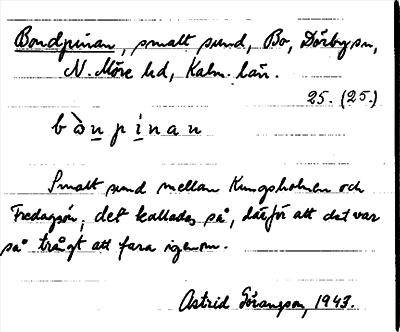 Bondpinan, smalt sund, Bo, Dörby sn,
N. Möre hd, Kalm. län.
25. (25.)
bὼnpínan
Smalt sund mellan Kungsholmen och
Fredagsön, det kallades så, därför att det var
så trångt att fara igenom.
Astrid Göransson, 1943.